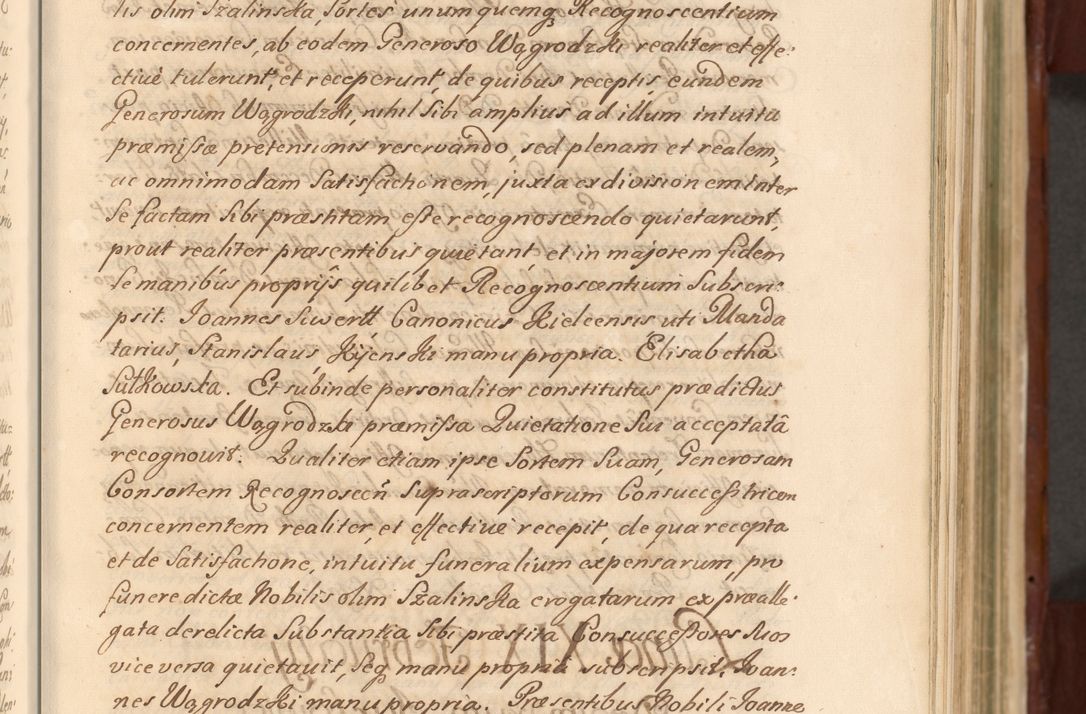 lis olim Szalinska, Sortes unumquemq Recognoscentium
concernentes, ab eodem Generoso Wągrodzki realiter et effe-
ctivè tulerunt, et receperunt, de quibus receptis, eundem
Generosum Wągrodzki, nihil Sibi amplius ad illum intuitu
præmissæ pretensionis reservando, sed plenam et realem,
ac omnimodam Satisfactionem, juxta exdivisionem inter
Se factam Sibi præstitam esse recognoscendo quietarunt,
prout realiter præsentibus quietant, et in majorem fidem
Se manibus proprijs quilibet Recognoscentium Subscri-
psit. Joannes Siwertt Canonicus Kielcensis uti Manda
tarius, Stanislaus Kijenski manu propria. Elisabetha
Sułkowska. Et subinde personaliter constitutus prædictus
Generosus Wągrodzki præmissa Quietatione Sui acceptatâ
recognovit. Qualiter etiam ipse Sortem Suam, Generosam
Consortem Recognoscen̄ Suprascriptorum Consuccessatricem
concernentem realiter, et effective recepit, de qua recepta
et de Satisfactione, intuitu funeralium expensarum, pro
funere dictæ Nobilis olim Szalinska erogatarum ex præalle-
gata derelicta Substantia Sibi præstita Consuccessores Suos
vice versa quietavit, Seq manu propria subscripsit. Joan-
nes Wągrodzki manu propria. Præsentibus Nobili Joanne